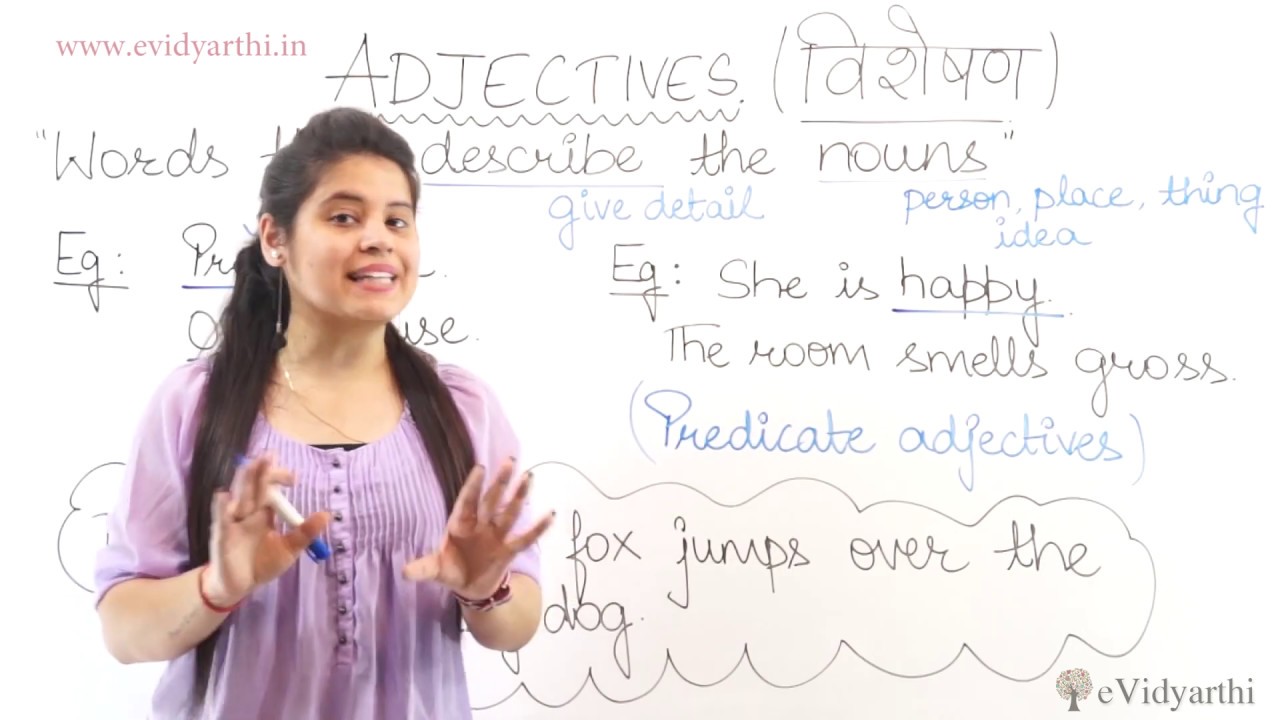 www.evidyarthi.in
ADJECTIVES. (विशेषण)
"Words describe the nouns"
give detail person, place, thing
idea
Eg:
Eg: She is happy.
The room smells gross.
(Predicate adjectives)
fox jumps over the
dog.
eVidyarthi